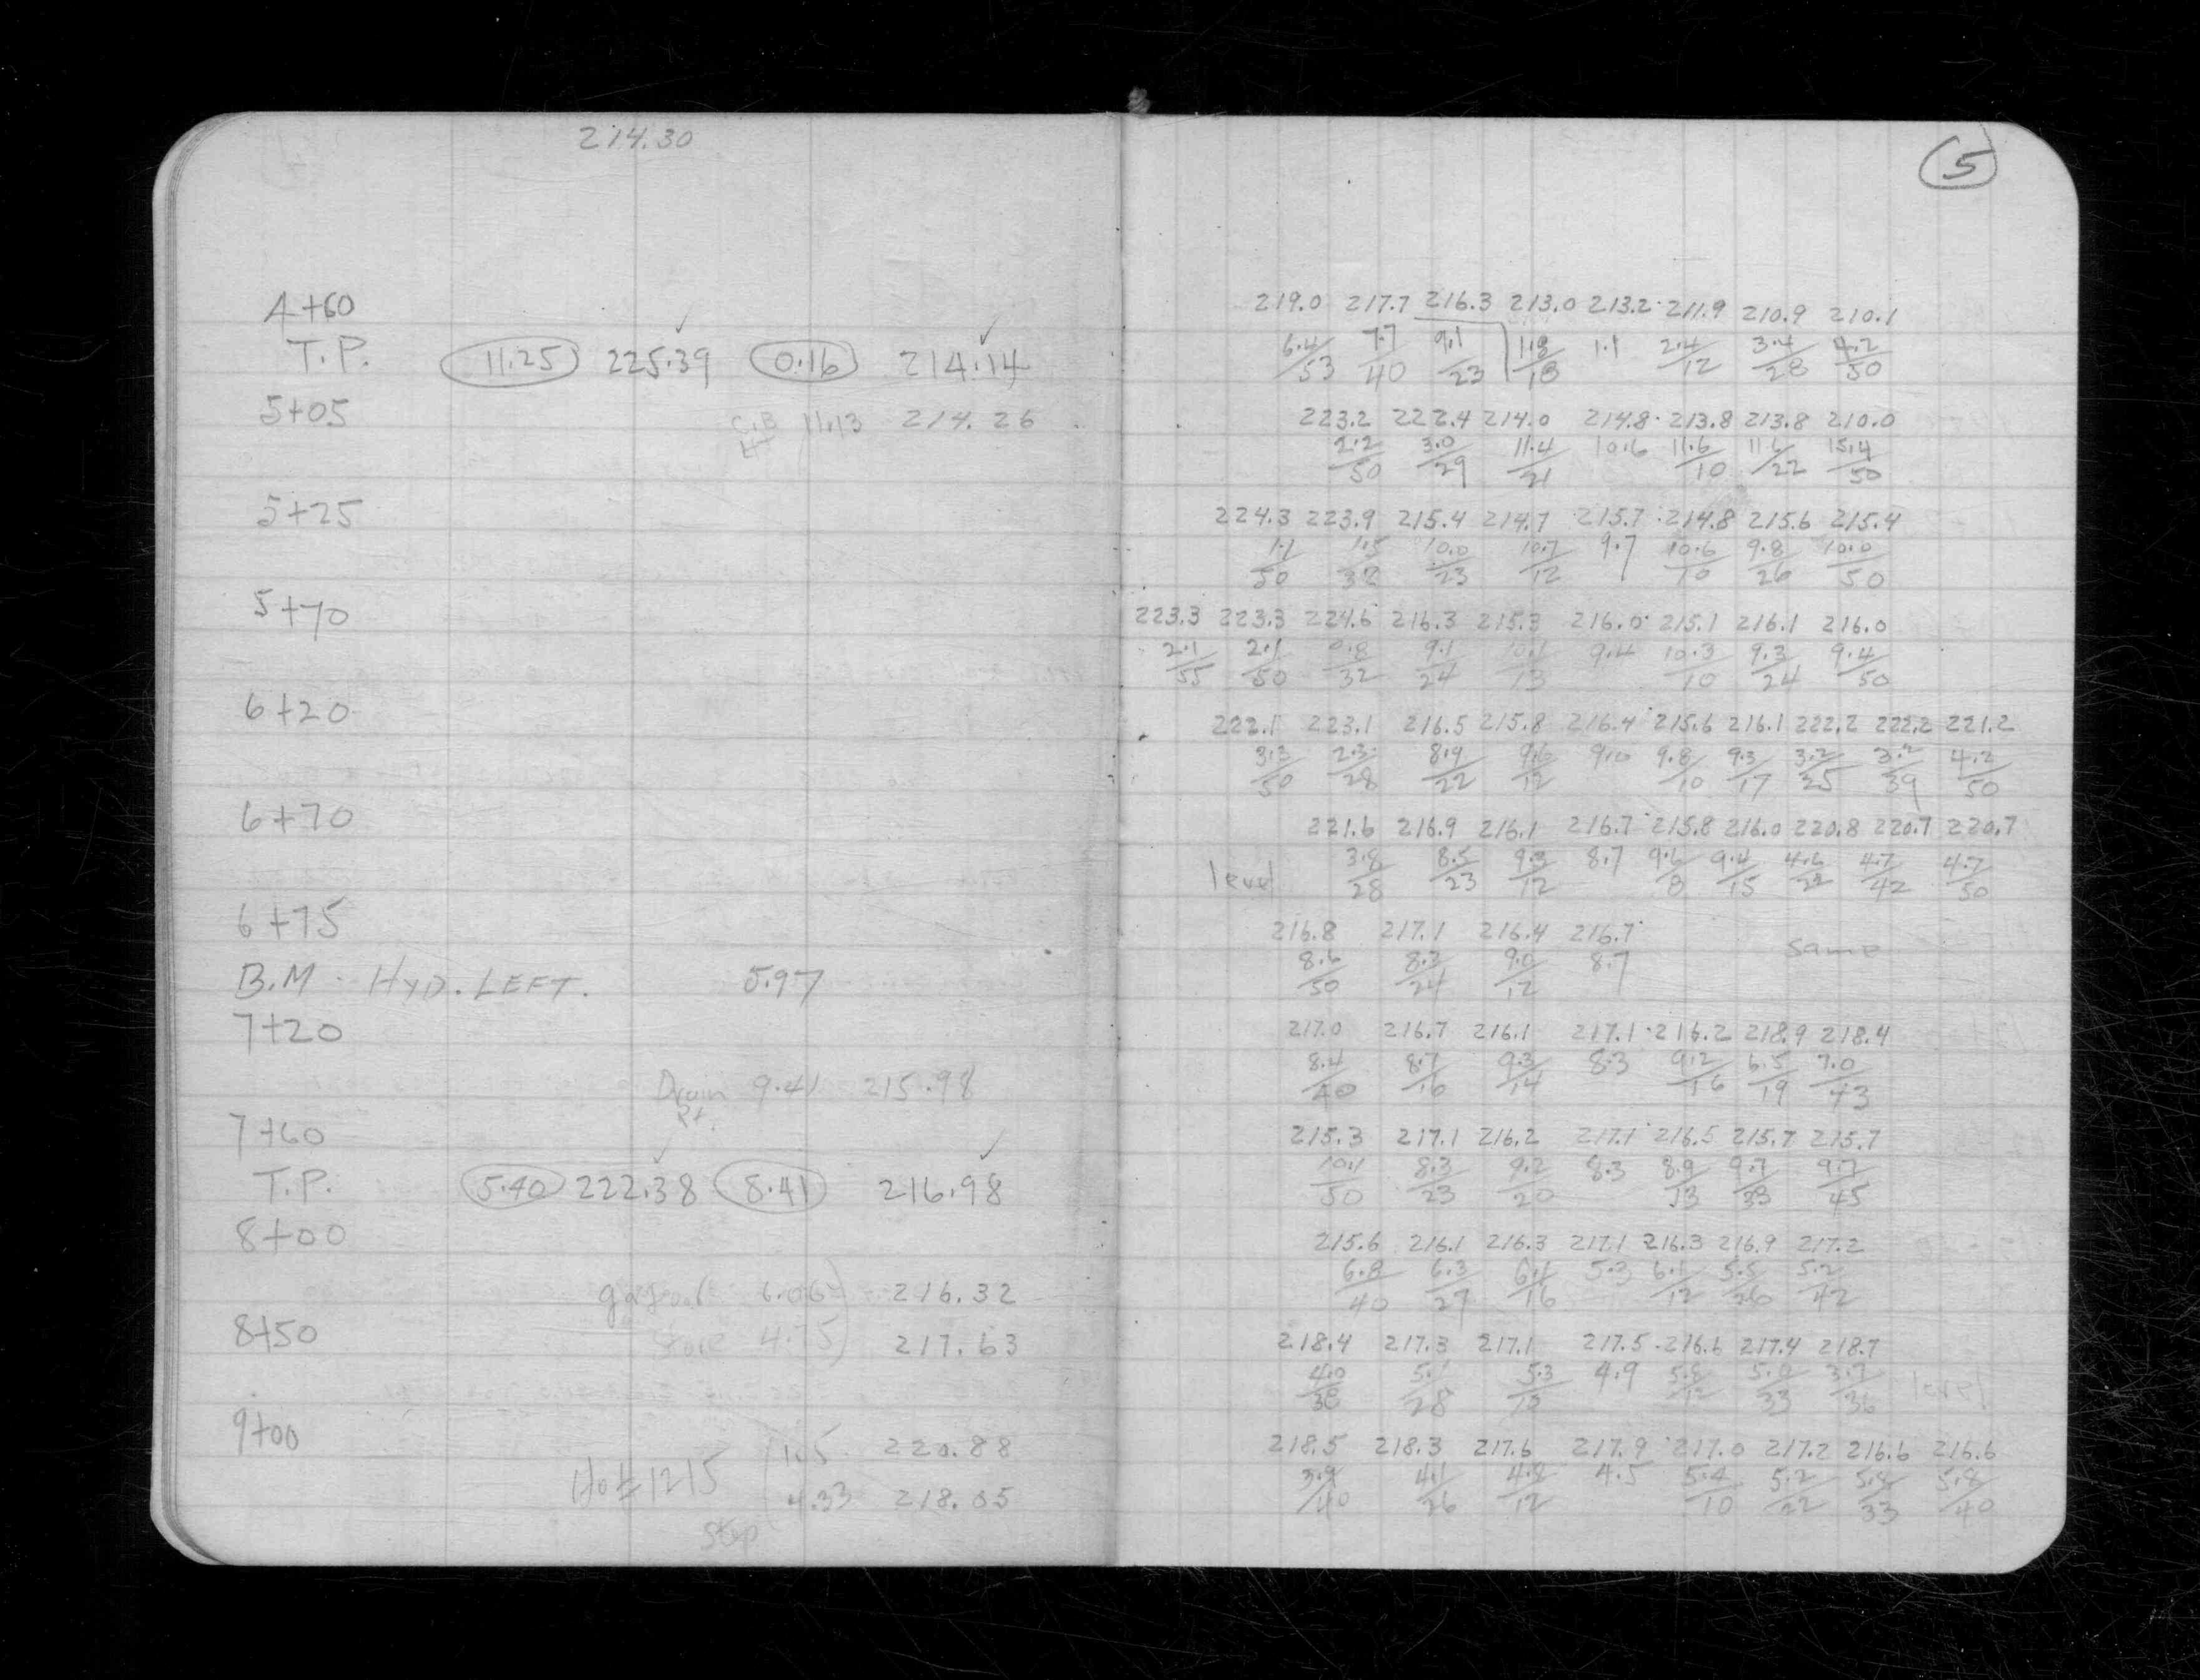 214.30
5
4+60
219.0 217.7 216.3 213.0 213.2 211.9 210.9 210.1
T.P. 11.25 225.39 0.16 214.14
6.4/53 7.7/40 9.1/23 1.3/18 1.1 2.4/12 3.4/28 4.2/50
5+05 C.B 11.13 214.26
223.2 222.4 214.0 214.8 213.8 213.8 210.0
2.2/50 3.0/29 11.4/21 10.6 11.6/10 11.6/22 15.4/50
5+25
224.3 223.9 215.4 214.7 215.7 214.8 215.6 215.4
1.1/50 1.5/32 10.0/23 10.7/12 9.7 10.6/10 9.8/26 10.0/50
5+70
223.3 223.3 224.6 216.3 215.3 216.0 215.1 216.1 216.0
2.1/55 2.1/50 0.8/32 9.1/24 10.1/13 9.4 10.3/10 9.3/24 9.4/50
6+20
222.1 223.1 216.5 215.8 216.4 215.6 216.1 222.2 222.2 221.2
3.3/50 2.3/28 8.9/22 9.6/12 9.0 9.8/10 9.3/17 3.2/25 3.2/39 4.2/50
6+70
221.6 216.9 216.1 216.7 215.8 216.0 220.8 220.7 220.7
level 3.8/28 8.5/23 9.3/12 8.7 9.6/8 9.4/15 4.6/22 4.7/42 4.7/50
6+75
216.8 217.1 216.4 216.7 same
B.M - HYD. LEFT. 5.97
8.6/50 8.3/24 9.0/12 8.7
7+20
217.0 216.7 216.1 217.1 216.2 218.9 218.4
8.4/40 8.7/16 9.3/14 8.3 9.2/16 6.5/19 7.0/43
Drain 9.41 215.98
Rt.
7+60
215.3 217.1 216.2 217.1 216.5 215.7 215.7
T.P. 5.40 222.38 8.41 216.98
10.1/50 8.3/23 9.2/20 8.3 8.9/13 9.7/33 9.7/45
8+00
215.6 216.1 216.3 217.1 216.3 216.9 217.2
6.8/40 6.3/27 6.1/16 5.3 6.1/12 5.5/26 5.2/42
6.06 216.32
8+50 4.75 217.63
218.4 217.3 217.1 217.5 216.6 217.4 218.7
4.0/38 5.1/28 5.3/12 4.9 5.8/12 5.0/33 3.7/36 level
9+00 1.5 220.88
218.5 218.3 217.6 217.9 217.0 217.2 216.6 216.6
3.9/40 4.1/26 4.8/12 4.5 5.4/10 5.2/22 5.8/33 5.8/40
1215 4.33 218.05
Step